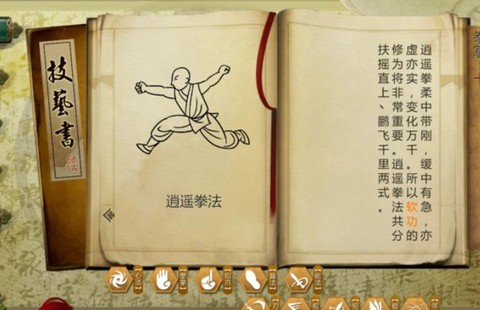 技藝書
逍遥拳法
逍遥拳柔中带刚，缓中有急，亦
虚亦实，变化万千。所以软功的
修为将非常重要。逍遥拳法共分
扶摇直上、鹏飞千里两式。